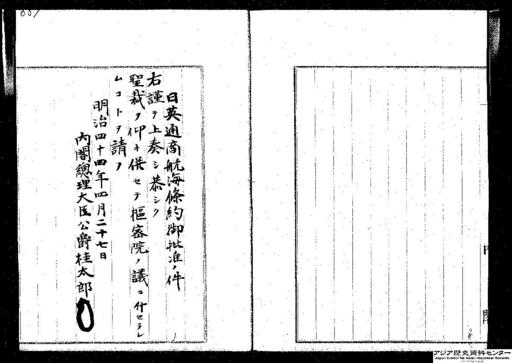 日英通商航海條約御批准ノ件
右謹テ上奏シ恭シク
聖裁ヲ仰キ併セテ樞密院ノ議ニ付セラレ
ムコトヲ請フ
明治四十四年四月二十七日
內閣總理大臣公爵桂太郎
內閣
アジア歴史資料センター
Japan Center for Asian Historical Records